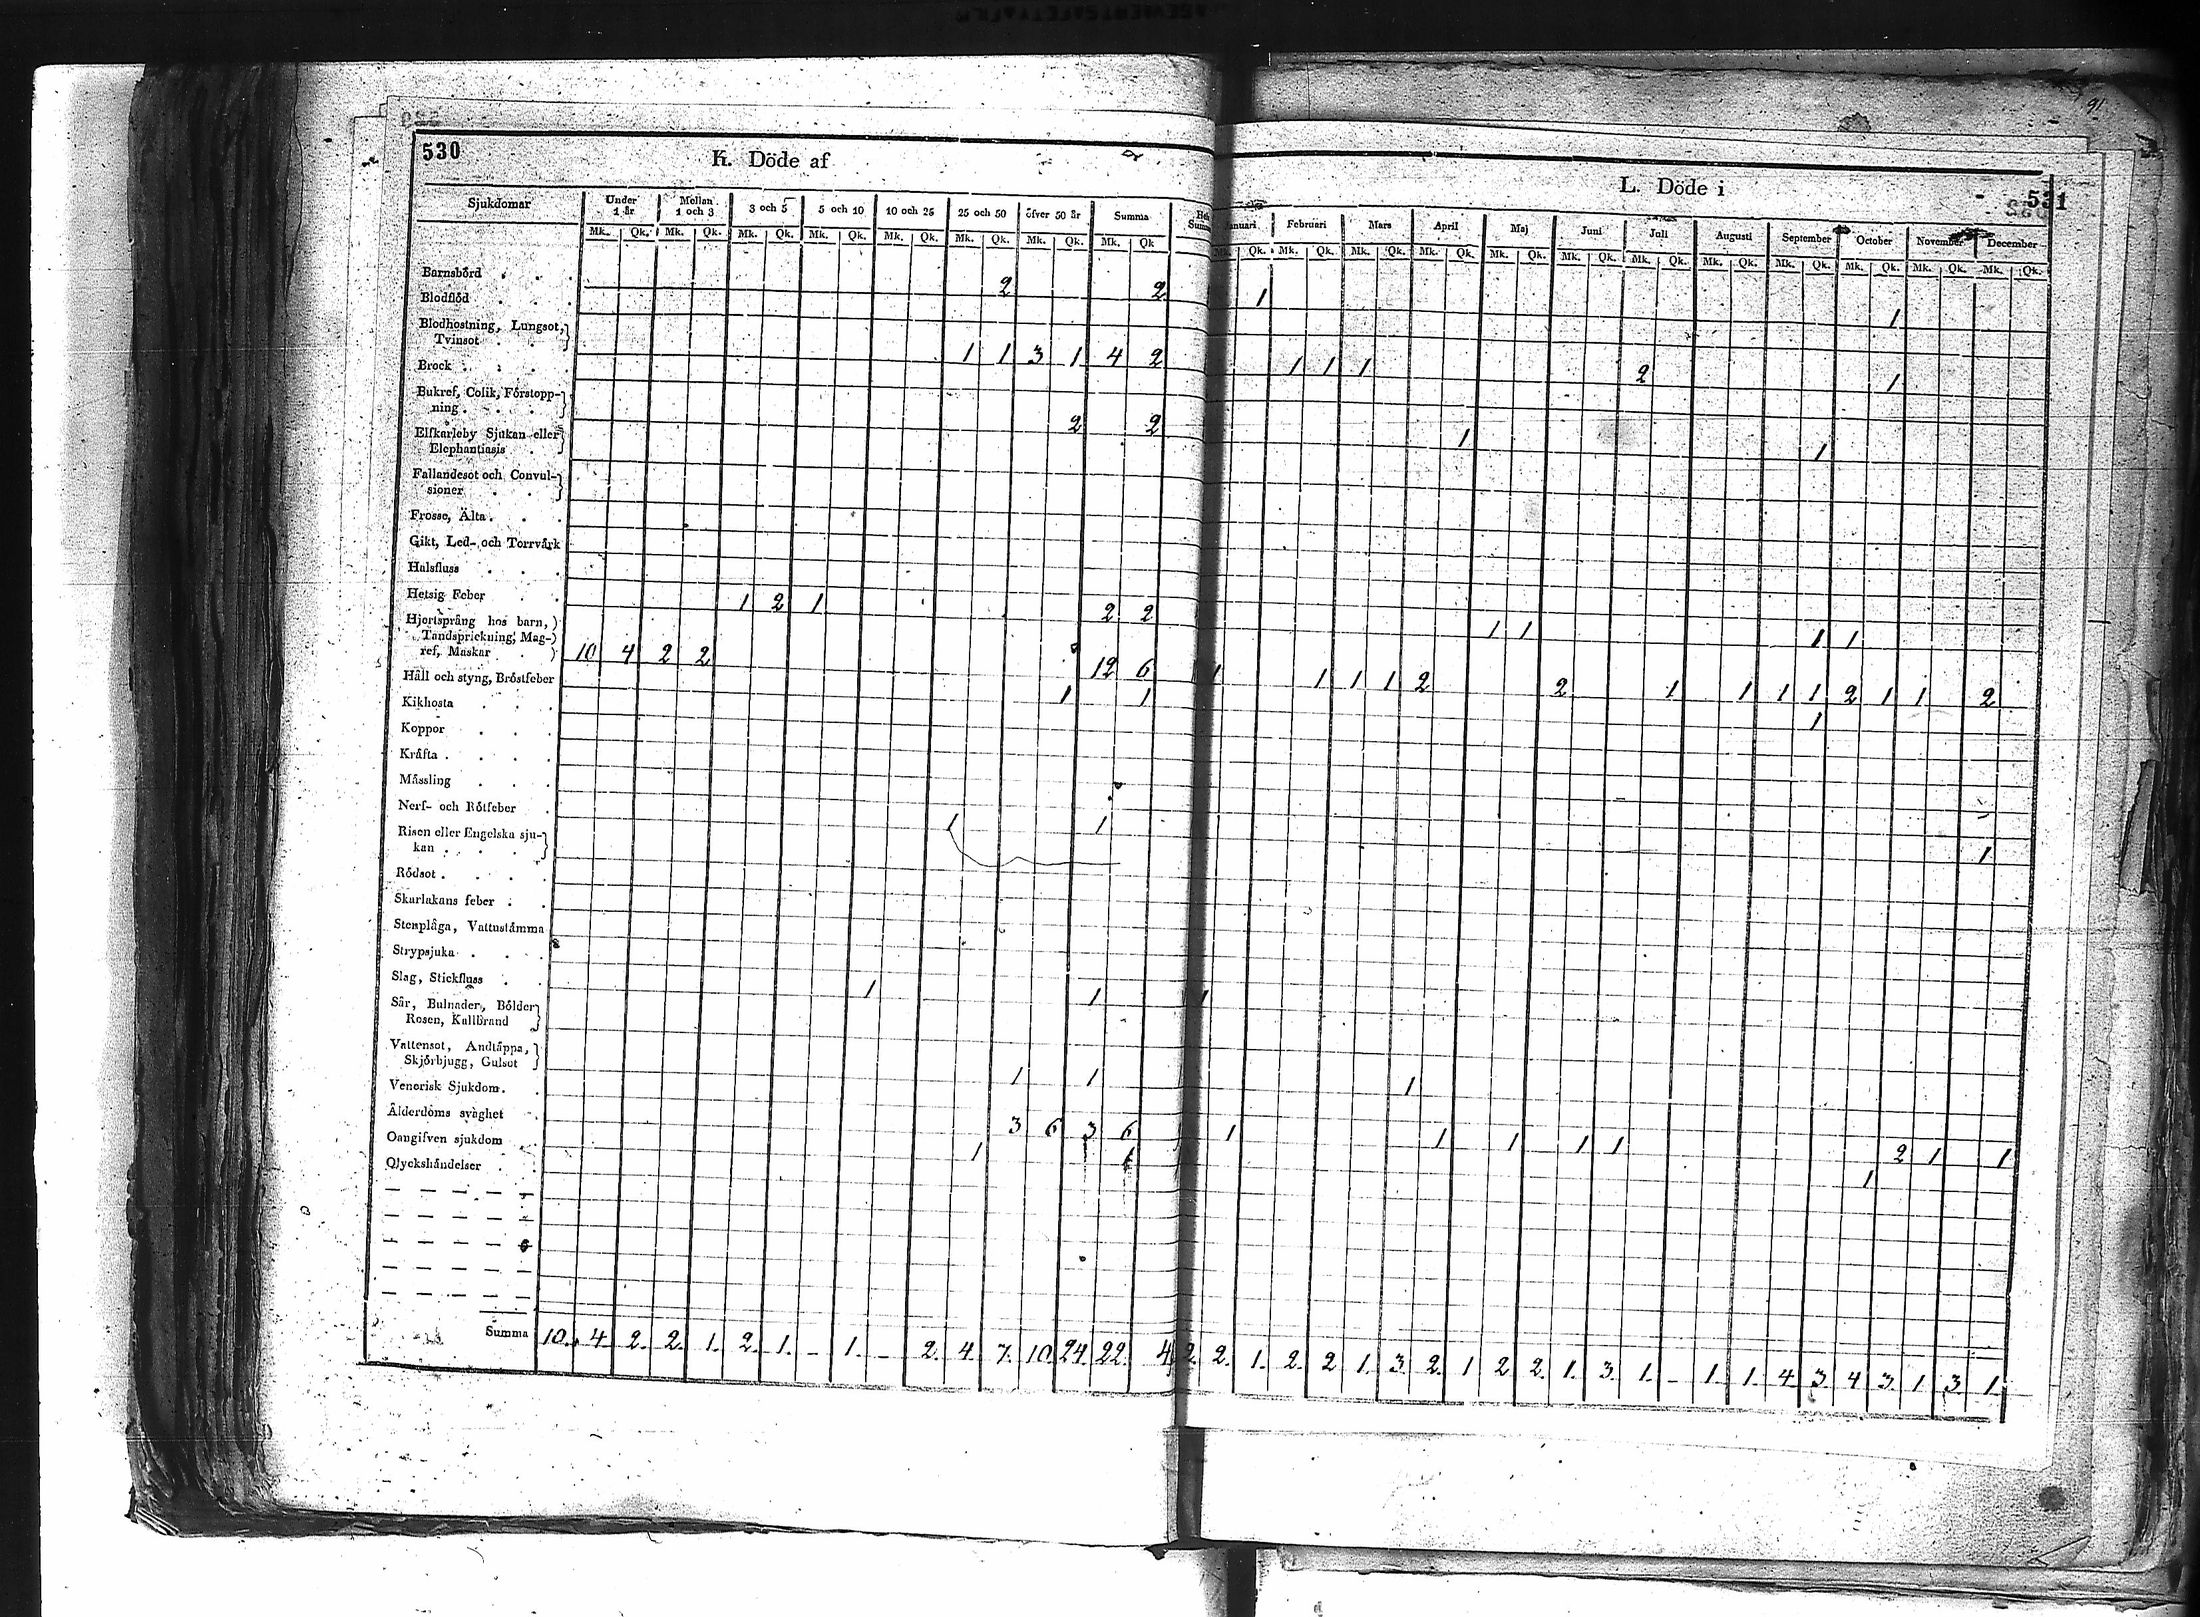 530
K. Döde af
L. Döde i
531
Sjukdomar Under 1 år Mellan 1 och 3 3 och 5 5 och 10 10 och 25 25 och 50 öfver 50 år Summa
Januari Februari Mars April Maj Juni Juli Augusti September October November December
Mk. Qk. Mk. Qk. Mk. Qk. Mk. Qk. Mk. Qk. Mk. Qk. Mk. Qk. Mk. Qk
Mk. Qk. Mk. Qk. Mk. Qk. Mk. Qk. Mk. Qk. Mk. Qk. Mk. Qk. Mk. Qk. Mk. Qk. Mk. Qk. Mk. Qk. Mk. Qk.
Barnsbörd 2 2 1 1
Blodflöd
Blodhostning, Lungsot,
Tvinsot 1 1 3 1 4 2 1 1 1 2 1
Brock
Bukref, Colik, Förstopp-
ning 2 2 1 1
Elfkarleby Sjukan eller
Elephantiasis
Fallandesot och Convul-
sioner
Frossa, Älta
Gikt, Led- och Torrvärk
Halsfluss
Hetsig Feber 1 2 1 2 2 1 1 1 1
Hjertsprång hos barn,
Tandsprickning, Mag-
ref, Maskar 10 4 2 2 12 6 1 1 1 1 2 2 1 1 1 1 2 1 1 2
Håll och styng, Bröstfeber 1 1 1
Kikhosta
Koppor
Kräfta
Mässling
Nerf- och Rötfeber 1 1 1
Risen eller Engelska sju-
kan
Rödsot
Skarlakans feber
Stenplåga, Vattustämma
Strypsjuka
Slag, Stickfluss 1 1 1
Sår, Bulnader, Bölder
Rosen, Kallbrand
Vattensot, Andtäppa,
Skjörbjugg, Gulsot 1 1 1
Venerisk Sjukdom.
Ålderdoms svaghet 3 6 3 6 1 1 1 1 1 2 1 1
Oangifven sjukdom 1 1 1
Olyckshändelser
Summa 10. 4. 2. 2. 1. 2. 1. - 1. - 2. 4. 7. 10. 24. 22. 4
2. 2. 1. 2. 2 1. 3. 2. 1 2 2. 1. 3. 1. - 1. 1. 4 3. 4 3. 1 3 1.